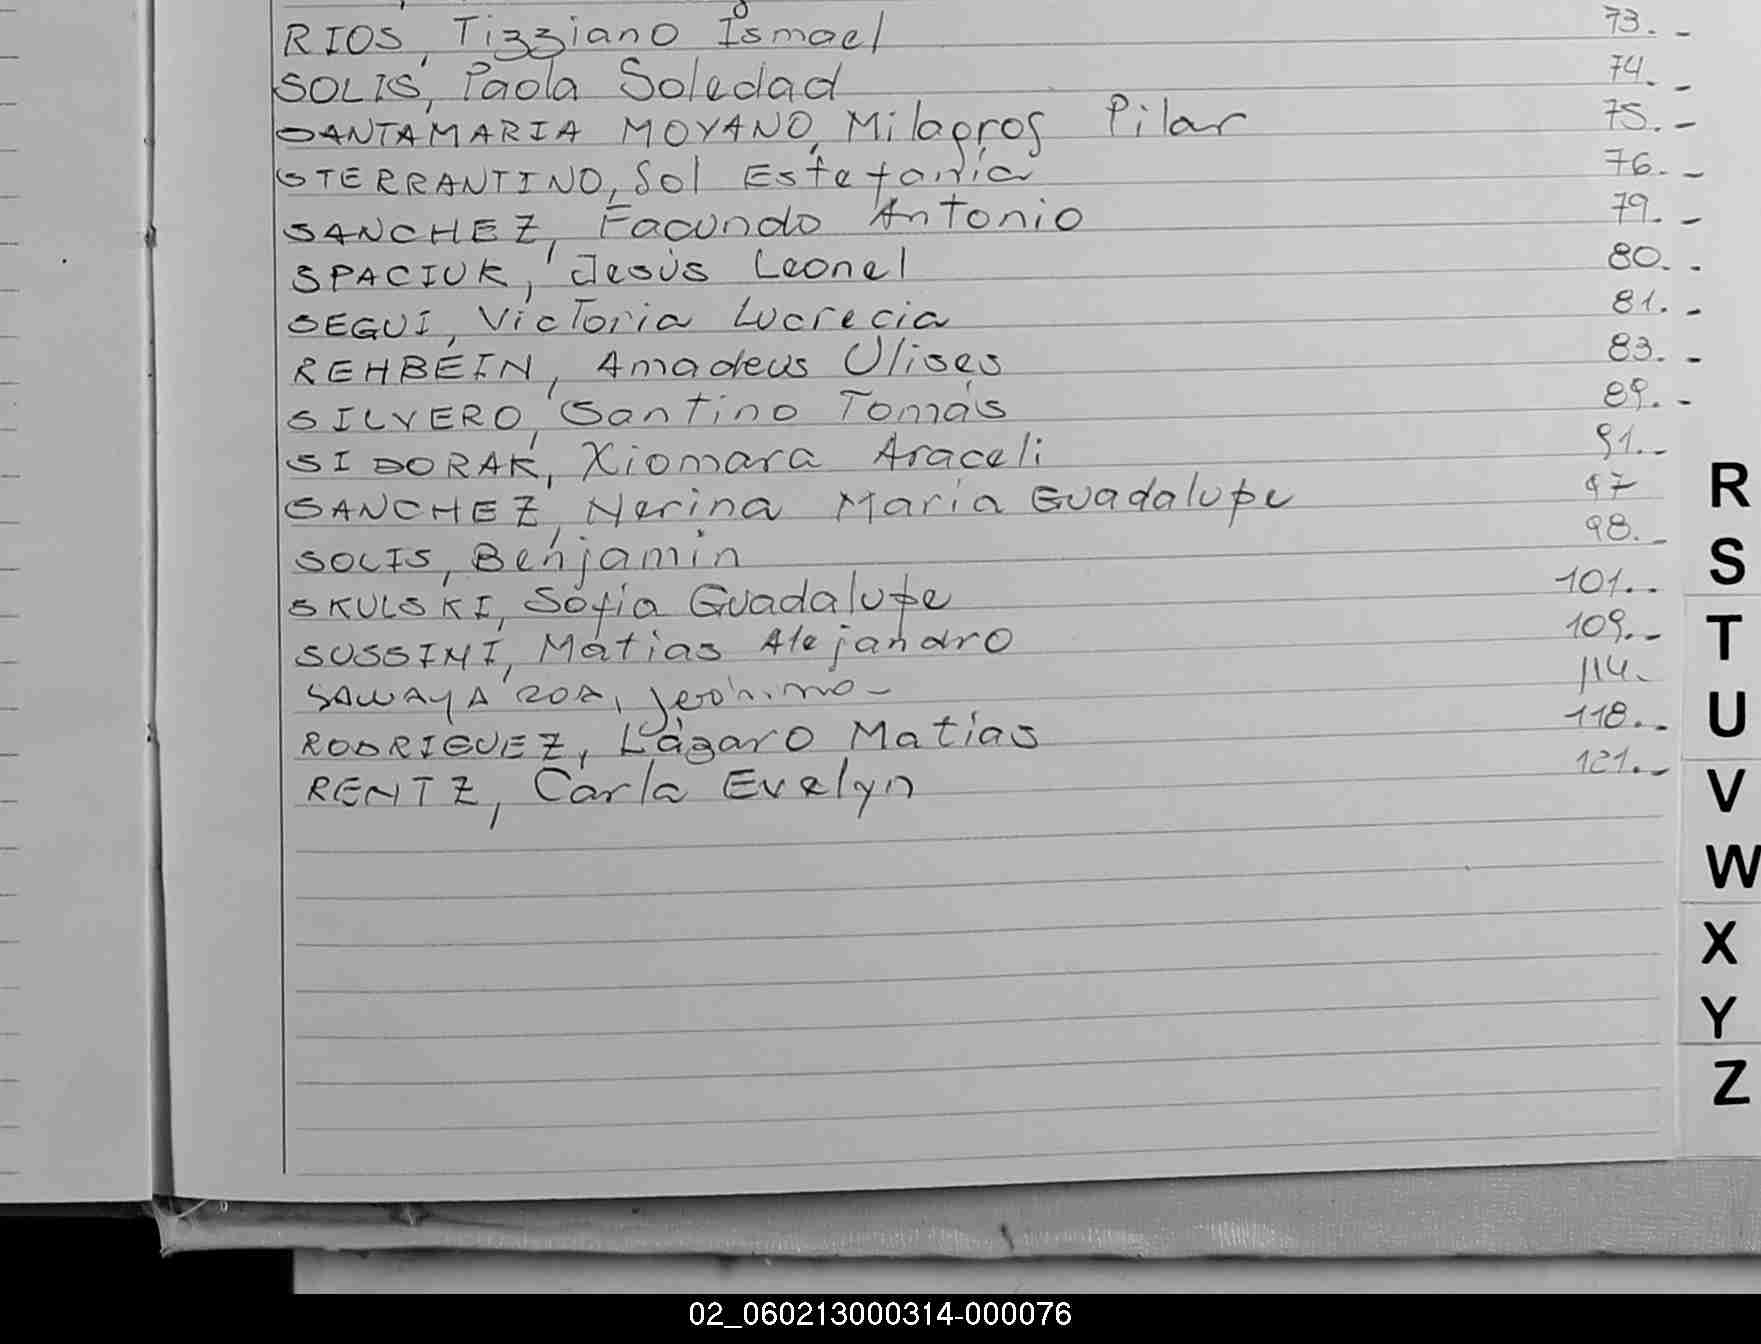 RIOS, Tizziano Ismael 73.-
SOLIS, Paola Soledad 74.-
SANTAMARIA MOYANO, Milagros Pilar 75.-
STERRANTINO, Sol Estefanía 76.-
SANCHEZ, Facundo Antonio 79.-
SPACIUK, Jesús Leonel 80.-
SEGUI, Victoria Lucrecia 81.-
REHBEIN, Amadeus Ulises 83.-
SILVERO, Santino Tomás 89.-
SIDORAK, Xiomara Araceli 91.-
SANCHEZ, Nerina Maria Guadalupe 97
SOLIS, Benjamin 98.-
SKULSKI, Sofia Guadalupe 101.-
SUSSINI, Matias Alejandro 109.-
SAWAYA, Jerónimo - 114.
RODRIGUEZ, Lázaro Matías 118.-
RENTZ, Carla Evelyn 121.-
R
S
T
U
V
W
X
Y
Z
02_060213000314-000076